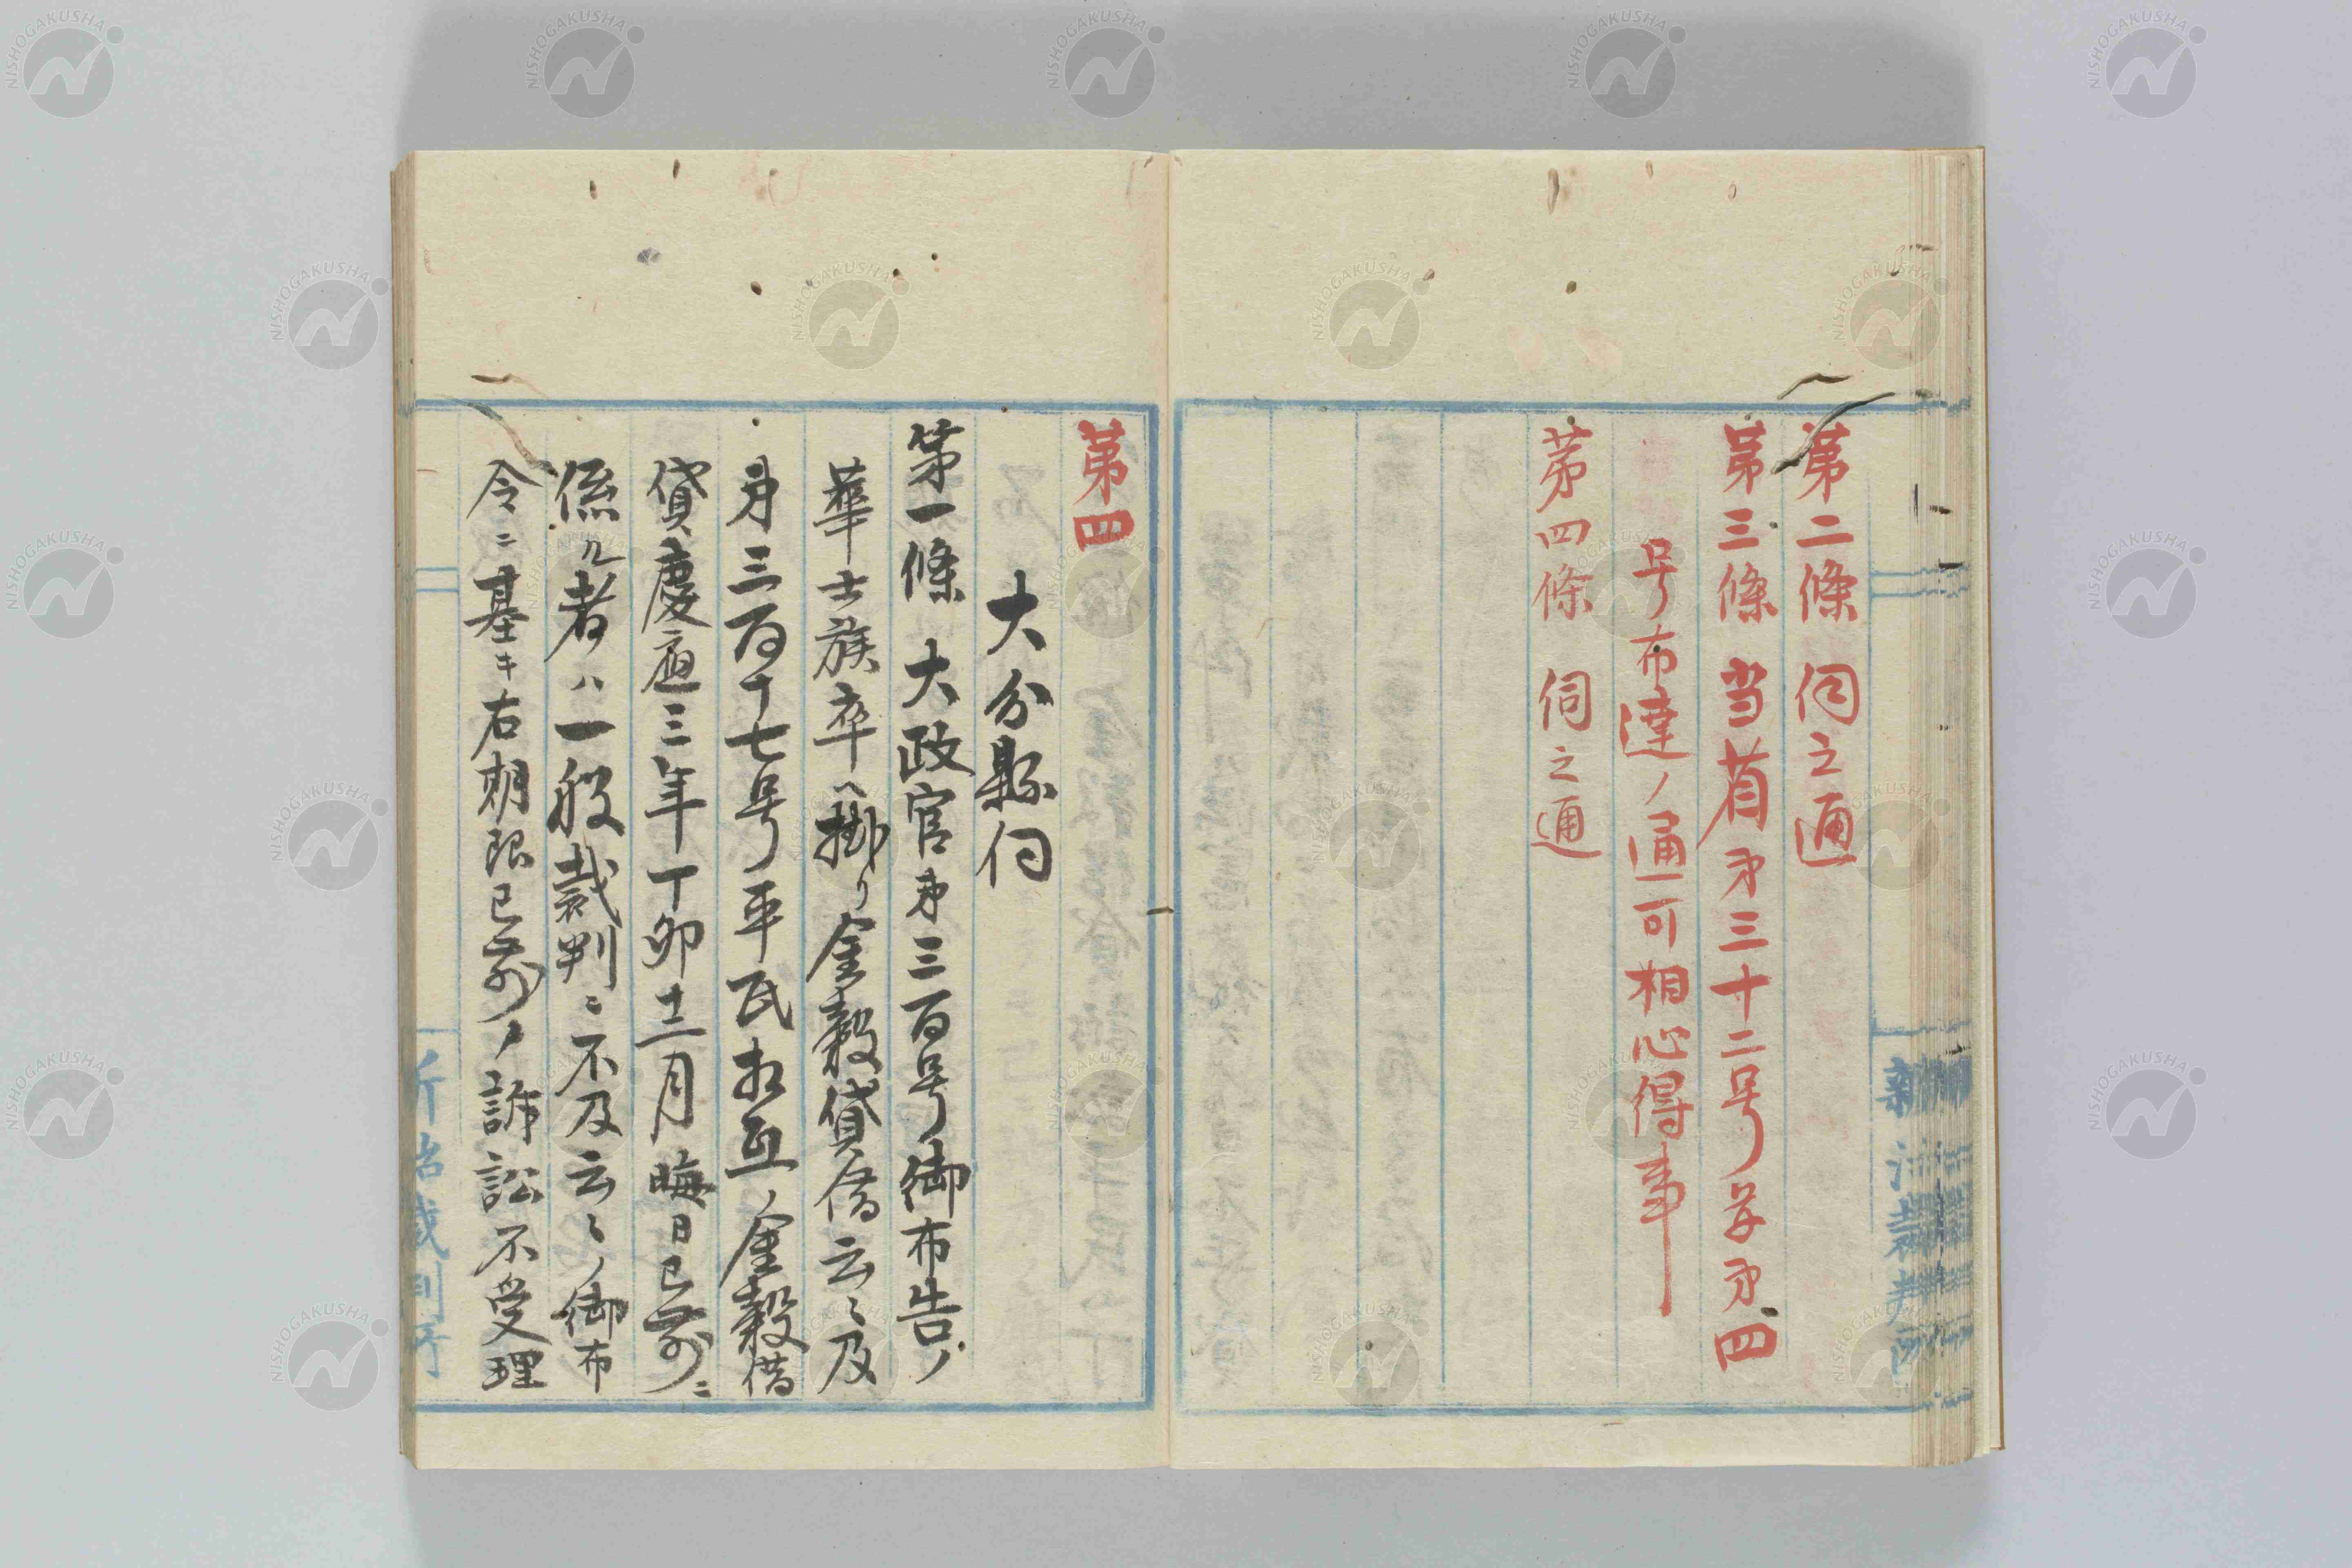 第二條 伺之通
第三條 当省第三十二号并第四
号布達ノ通可相心得事
第四條 伺之通
第四
大分縣伺
第一條 大政官第三百号御布告ノ
華士族卒ヘ掛リ金穀貸借云々及
第三百十七号平民相互ノ金穀借
貸慶應三年丁卯十二月晦日已前ニ
係ル者ハ一般裁判ニ不及云々ノ御布
令ニ基キ右期限已前ノ訴訟不受理
新治裁判所
NISHOGAKUSHA